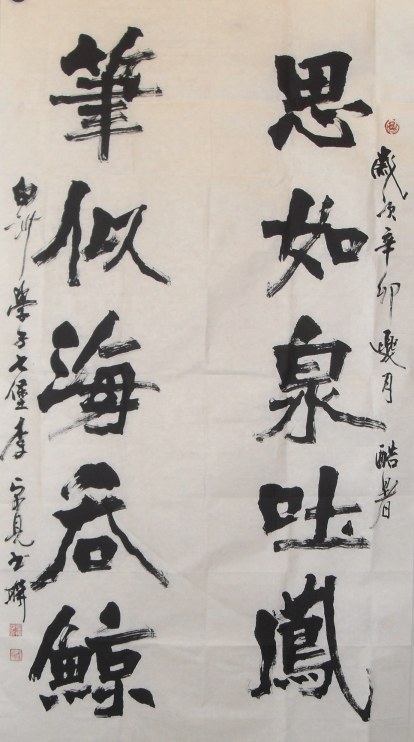 歲次辛卯夏月酷暑
思如泉吐鳳
筆似海吞鯨
學子七堡李宗見書聯